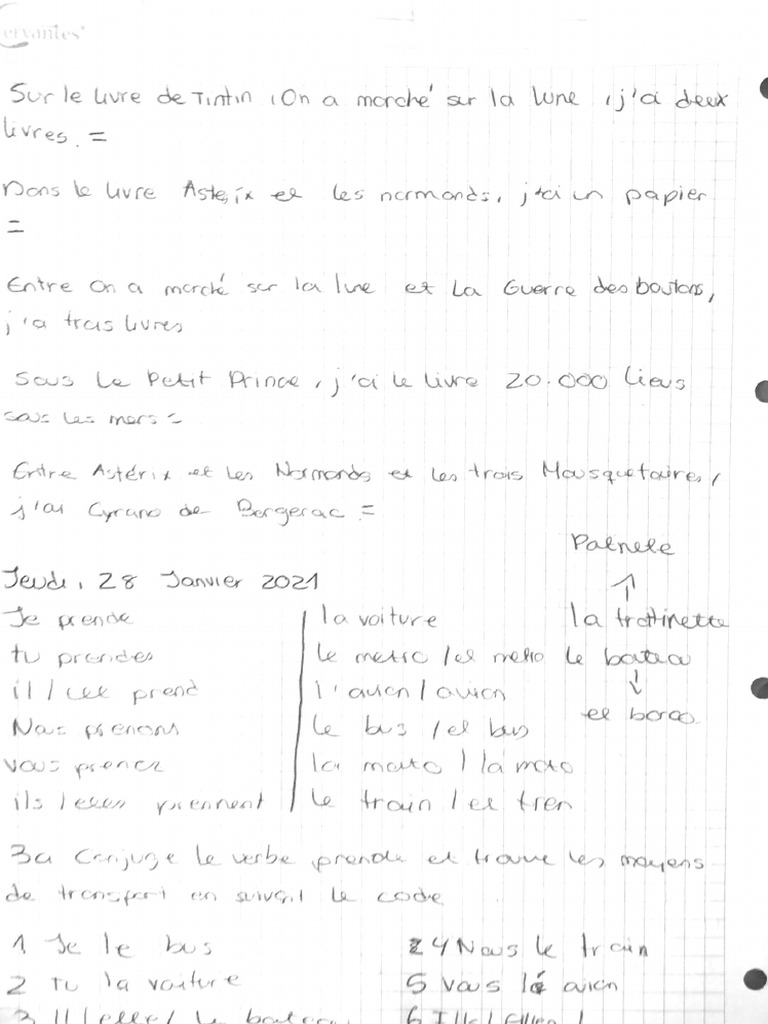 ervantes
Sur le livre de Tintin, On a marché sur la lune, j'ai deux
livres. =
Dans le livre Astérix et les normands, j'ai un papier
=
Entre On a marché sur la lune et La Guerre des boutons,
j'a trois livres
Sous le Petit Prince, j'ai le livre 20.000 lieus
sous les mers =
Entre Astérix et les Normands et les trois Mousquetaires,
j'ai Cyrano de Bergerac =
Patnete
Jeudi, 28 Janvier 2021
Je prende | la voiture la trottinette
tu prendes le metro / el metro le bateau
il / elle prend l'avion / avion
Nous prenons le bus / el bus el barco
vous prenez la moto / la moto
ils / elles prennent le train / el tren
3a Conjuge le verbe prende et trouve les moyens
de transport en suivait le code
1 Je le bus 4 Nous le train
2 Tu la voiture 5 Vous l'avion
3 Il/elle/ le bateau 6